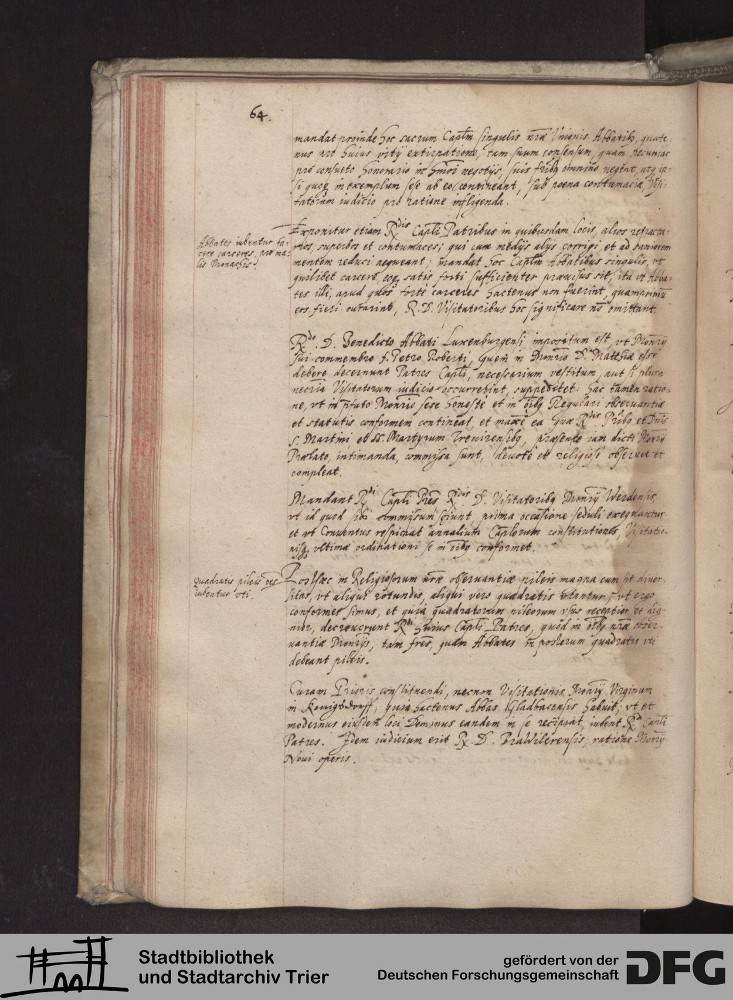 64.
mandat proinde hoc sacrum Caplm singulis nrae Unionis Abbatib, quate-
nus pro huius vitij extirpatione, tam suum consensum, quam pecuniae
pro consueto honorario in hmoi negotijs, suis fribq omnino negent, atq ip-
si quoq in exemplum sese ab eo contineant, sub poena contumaciae, Visi-
tatorum iudicio pro ratione infligenda.
Abbates iubentur fa-
cere carceres, pro ma-
lis Monachis.
Exponitur etiam Rdis Capli Patribus in quibusdam locis, alios refracta-
rios, superbos et contumaces; qui cum medijs alijs corrigi et ad saniorem
mentem reduci nequeant; mandat hoc Caplm Abbatibus singulis, vt
quilibet carcere, eoq satis forti sufficienter provisus sit, ita vt Abba-
tes illi, apud quos forte carceres hactenus non fuerint, quamprimum
eos fieri curarint, R. D. Visitatoribus hoc significare no omittant.
Rdo D. Benedicto Abbati Luxenburgensi impositum est, vt Monrij
sui commembro f. Petro Roberti, quem in Monrio D. Matthiae esse
debere decernunt Patres Capli, necessarium vestitum, aut si plura
necria Visitatorum iudicio occurrerint, suppeditet: hac tamen ratio-
ne, vt in pfato Monrio sese honeste et in oibq Regulari observantiae
et statutis conformem contineat, et maxe ea quae Rdis Pribq et Dnis
S. Martini et SS. Martyrum Trevirensibq, praesente iam dicti Monrij
Praelato, intimanda, commissa sunt, devote et religiose observet et
compleat.
Mandant Rdi Capli Pres Rdis D. Visitatoribq Monrij Werdensis
vt id quod sibi commissum sciunt, prima occasione seduli exequantur
et vt Conventus respiciat annalium Caplorum constitutiones, Visitatio-
nisq ultimae ordinationi se in oibq conformet.
Quadratis pileis oes
iubentur vti.
Posthaec in Religiosorum nrae observantiae pileis magna cum sit diver-
sitas, vt aliqui rotundis, aliqui vero quadratis utantur, vt ergo
conformes simus, et quia quadratorum pileorum usus receptior et dig-
nior, decreverunt Rdi huius Capli Patres, quod in oibq nrae obser-
vantiae Monrijs, tam fres, quam Abbates in posterum quadratis vti
debeant pileis.
Curam Prioris constituendi, necnon Visitationis Monrij Virginum
in Konigsdorff, quia hactenus Abbas Gladbacensis habuit, vt et
modernus eiusdem loci Dominus eandem in se recipiat, iubent Rdi Capli
Patres. Idem iudicium erit R. D. Brawilerensis, ratione Monrij
Novi operis.
Stadtbibliothek
und Stadtarchiv Trier
gefördert von der
Deutschen Forschungsgemeinschaft
DFG